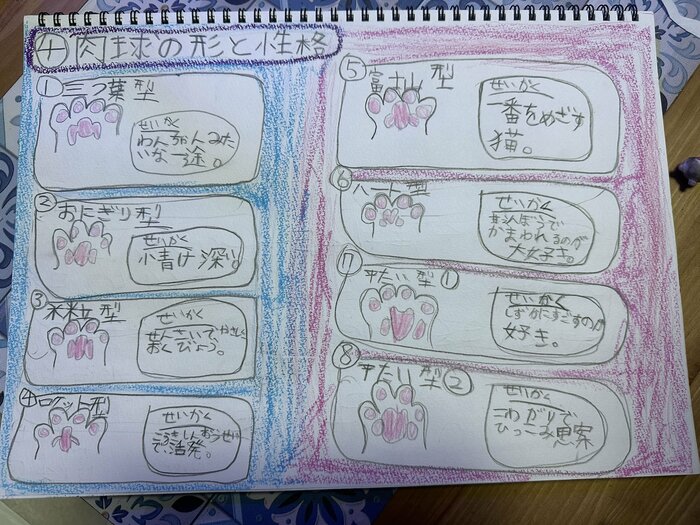 ④肉球の形と性格
①三つ葉型
せいかく
わんちゃんみた
いな一途。
②おにぎり型
せいかく
小青け深い。
③米粒型
せいかく
せんさいで
やさしく
おくびょう。
④ロケット型
せいかく
こうきしんおうせい
で、活発。
⑤富士山型
せいかく
一番をめざす
猫。
⑥ハート型
せいかく
甘えんぼうで
かまわれるのが
大好き。
⑦平たい型①
せいかく
しずかにすごすのが
好き。
⑧平たい型②
せいかく
こわがりで
ひっこみ思案